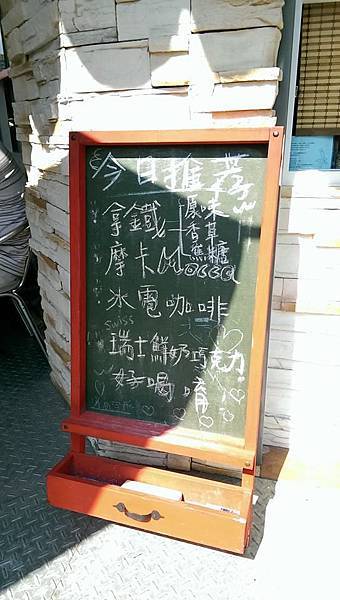 今日推薦
拿鐵
原味
香草
焦糖
摩卡
冰電咖啡
swiss
瑞士鮮奶巧克力
好喝唷